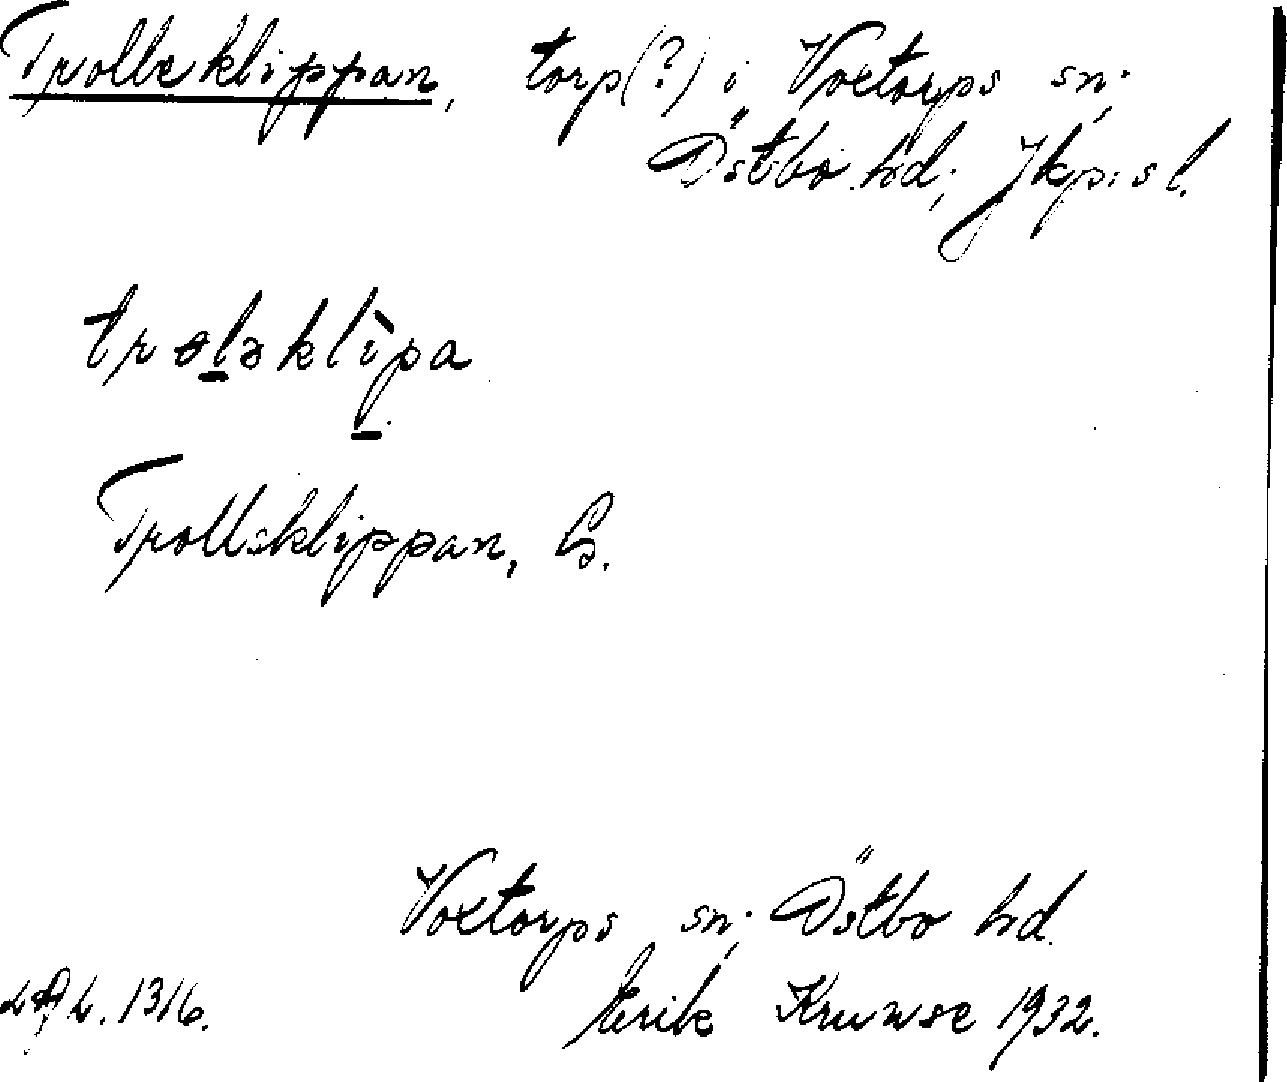 Trollseklippan, torp(?) i Voxtorps sn;
Östbo hd; Jkp:s l.
trɵləklìpa
Trollseklippan, G.
Voxtorps sn; Östbo hd.
1316. Erik Kruuse 1932.